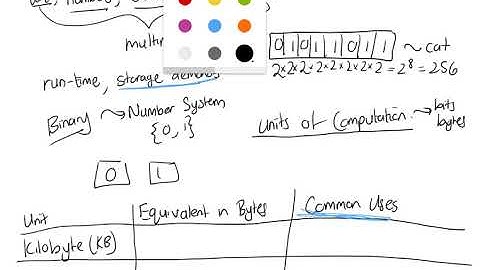 multi
0 1 0 1 1 0 1 1 ~ cat
2×2×2×2×2×2×2×2 = 2⁸ = 256
run-time, storage demands
Binary Number System
{0, 1}
Units of Computation bits
bytes
0 1
Unit Equivalent in Bytes Common Uses
Kilobyte (KB)